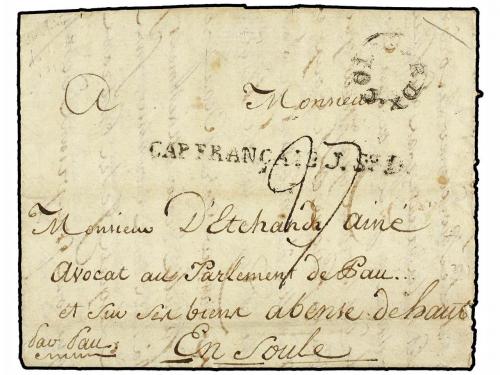 A Monsieur
CAP FRANÇAIS J. St D.
Monsieur D'Etchandy ainé
Avocat au Parlement de Pau
et sur ses biens abense de haut
En Soule
par Pau